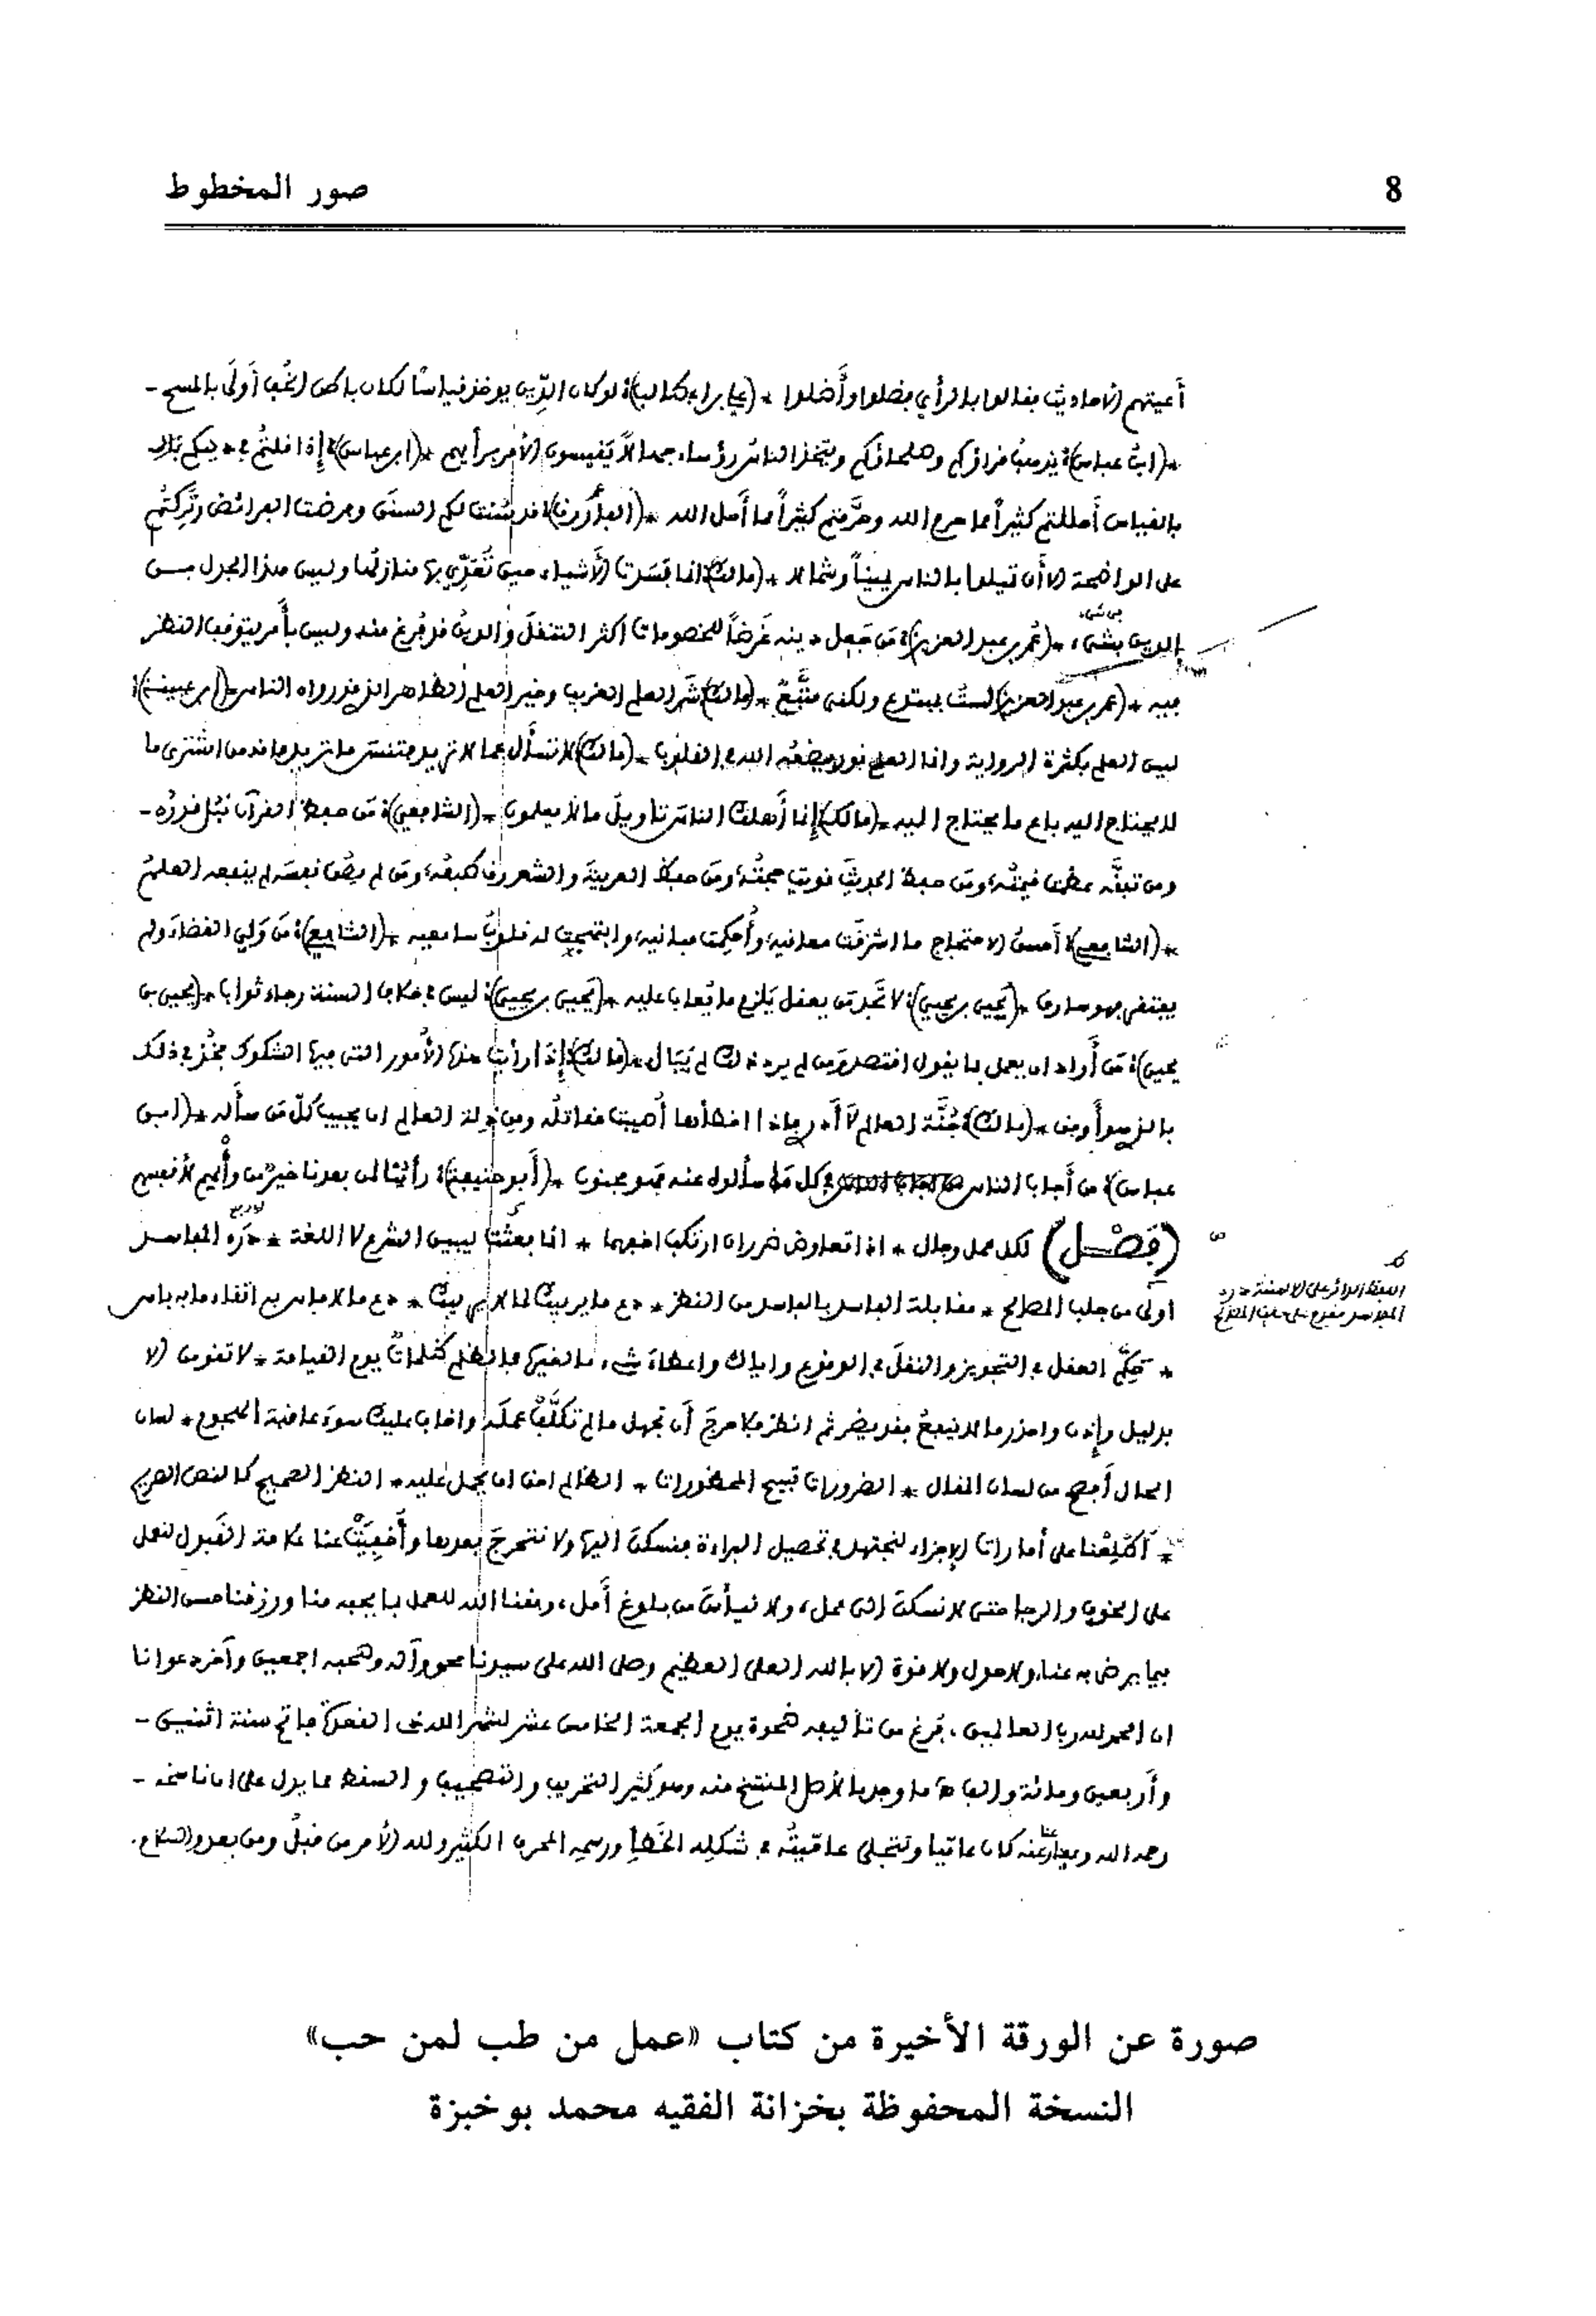 8
صور المخطوط
أعيتهم الأحاديث فقالوا بالرأي فضلوا وأضلوا * (علي بن أبي طالب): لو كان الدين يوخذ قياسا لكان باطن الخف أولى بالمسح -
* (ابن عباس): يذهب قراؤكم وصلحاؤكم ويتخذ الناس رؤساء جهالا يقيسون الأمر برأيهم * (ابن عباس): إذا قلتم في دينكم
بالقياس أحللتم كثيرا مما حرم الله وحرمتم كثيرا مما أحل الله * (الفاروق): قد سننت لكم السنن وفرضت الفرائض وتركتم
على الواضحة الا أن تميلوا بالناس يمينا وشمالا * (مالك): انما فسدت الأشياء حين تعدي بها منازلها وليس هذا الجدل من
في شيء
الدين بشيء * (عمر بن عبد العزيز): من جعل دينه غرضا للخصومات اكثر التنقل والدين قد فرغ منه وليس بأمر يتوقف النظر
فيه * (عمر بن عبد العزيز) لست بمبتدع ولكني متبع * (مالك) شر العلم الغريب وخير العلم الظاهر الذي قد رواه الناس * (ابن عيينة):
ليس العلم بكثرة الرواية وانما العلم نور يضعه الله في القلوب * (مالك) لا تسأل عما لا تريد فتنسى ما تريد فإنه من اشترى ما
لا يحتاج اليه باع ما يحتاج اليه * (مالك) إنما أهلك الناس تاويل ما لا يعلمون * (الشافعي): من حفظ القرآن نبل قدره -
ومن تفقه عظمت قيمته ومن حفظ الحديث قويت حجته ومن حفظ العربية والشعر رق طبعه ومن لم يصن نفسه لم ينفعه العلم
* (الشافعي): أحسن الاحتجاج ما اشرقت معانيه وأحكمت مبانيه وابتهجت له قلوب سامعيه * (الشافعي): من ولي القضاء ولم
يفتقر فهو سارق * (يحيى بن يحيى): لا تجد من يعقل يلزم ما يعاب عليه * (يحيى بن يحيى): ليس في خلاف السنة رجاء ثواب * (يحيى بن
يحيى): من أراد ان يعمل بما يقول اقتصد ومن لم يرد ذلك لم يبال * (مالك): إذا رأيت هذه الأمور التي فيها الشكوك فخذ في ذلك
بالذي هو أوفق * (مالك): جنة العالم لا أدري فإذا اخطأها أصيبت مقاتله ومن العالم ان يجيب كل من سأله * (ابن
عباس): من أجاب الناس في كل ما سألوه عنه فهو مجنون * (أبو حنيفة): رأينا لمن بعدنا خير من رأيهم لأنفسهم
(فصل) لكل محل رجال * اذا تعارض ضرران ارتكب اخفهما * انما بعثت ليبين الشرع لا اللغة * درء المفاسد
أولى من جلب المصالح * مقابلة الفاسد بالفاسد من النظر * دع ما يريبك لما لا يريبك * دع ما لا باس به اتقاء ما به باس
* حكم العقل في التجويز والنقل في الوقوع واياك واعطاء شيء ما لغيره فالظلم ظلمات يوم القيامة * لا تقومن الا
بدليل وإذن واحذر ما لا ينفع فقد يضر ثم انظر فلا حرج أن تجهل ما لم تكلف عمله واخاف عليك سوء عاقبة الهجوم * لسان
الحال أفصح من لسان المقال * الضرورات تبيح المحظورات * الظالم احق ان يحمل عليه * النظر الصحيح كالنص الصريح
* أطلعنا على أمارات الإجزاء لنجتهد في تحصيل البراءة فنسكن اليها ولا نتحرج بعدها وأخفيت عنا علامة القبول لنعمل
على الخوف والرجا حتى لا نسكن الى عمل، ولا نيأس من بلوغ أمل، وفقنا الله للعمل بما يحبه منا ورزقنا حسن النظر
فيما يرضى به عنا، ولا حول ولا قوة الا بالله العلي العظيم وصلى الله على سيدنا محمد وآله وصحبه اجمعين وآخر دعوانا
ان الحمد لله رب العالمين، فرغ من تأليفه ضحوة يوم الجمعة الخامس عشر لشهر الله ذي القعدة فاتح سنة اثنين -
وأربعين ومائة والف ما وجد بالأصل المنتسخ منه وهو كثير التحريف والتصحيف والسقط مما يدل على ان ناسخه -
رحمه الله وعفا عنه كان عاميا وتتجلى عاميته في شكله الخطإ ورسمه المحرف الكثير ولله الأمر من قبل ومن بعد والسلام.
صورة عن الورقة الأخيرة من كتاب «عمل من طب لمن حب»
النسخة المحفوظة بخزانة الفقيه محمد بوخبزة